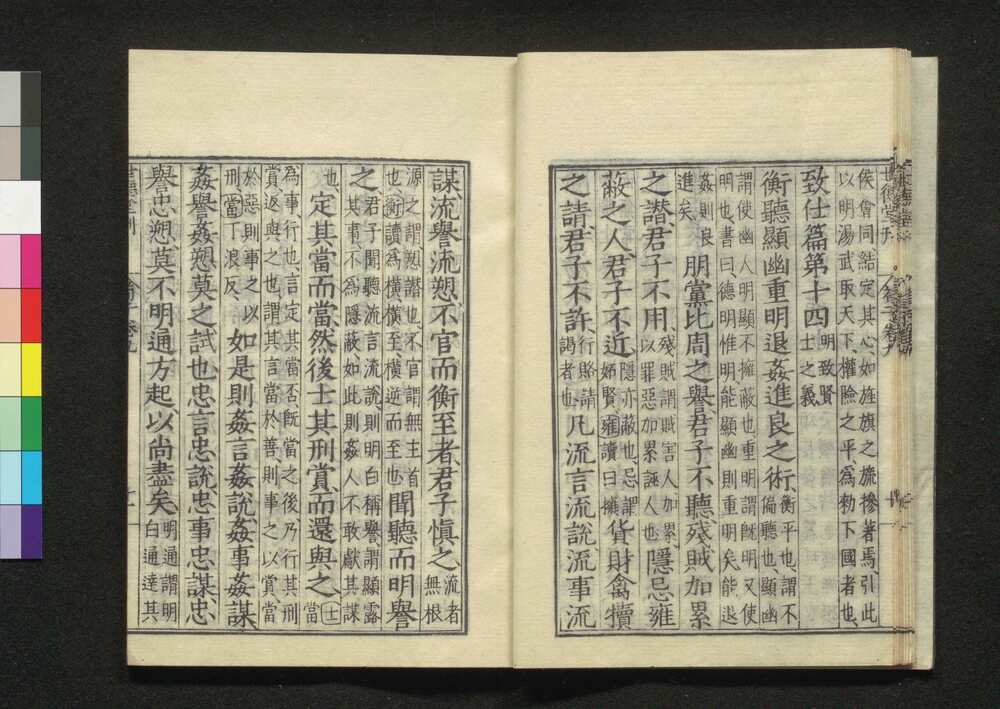 世德堂刊
侯會同結定其心如旌旗之旒摻著焉引此
以明湯武取天下權險之平爲勑下國者也
致仕篇第十四 明致賢
士之義
衡聽顯幽重明退姦進良之術 衡平也謂不
偏聽也顯幽
謂使幽人明顯不擁蔽也重明謂既明又使
明也書曰德明惟明能顯幽則重明矣能退
姦則良
進矣 朋黨比周之譽君子不聽殘賊加累
之譖君子不用 殘賊謂賊害人加累
以罪惡加累誣人也 隱忌雍
蔽之人君子不近 隱亦蔽也忌謂
妬賢雍讀曰擁 貨財禽犢
之請君子不許 行賂請
謁者也 凡流言流說流事流
謀流譽流愬不官而衡至者君子慎之 流者
無根
源之謂愬譖也不官謂無主首
也衡讀爲橫橫至橫逆而至也 聞聽而明譽
之 君子聞聽流言流說則明白稱譽謂顯露
其事不爲隱蔽如此則姦人不敢獻其謀
也 定其當而當然後士其刑賞而還與之 士當
爲事行也言定其當否既當之後乃行其刑
賞返與之也謂其言當於善則事之以賞當
於惡則事之以
刑當丁浪反 如是則姦言姦說姦事姦謀
姦譽姦愬莫之試也忠言忠說忠事忠謀忠
譽忠愬莫不明通方起以尚盡矣 明通謂明
白通達其